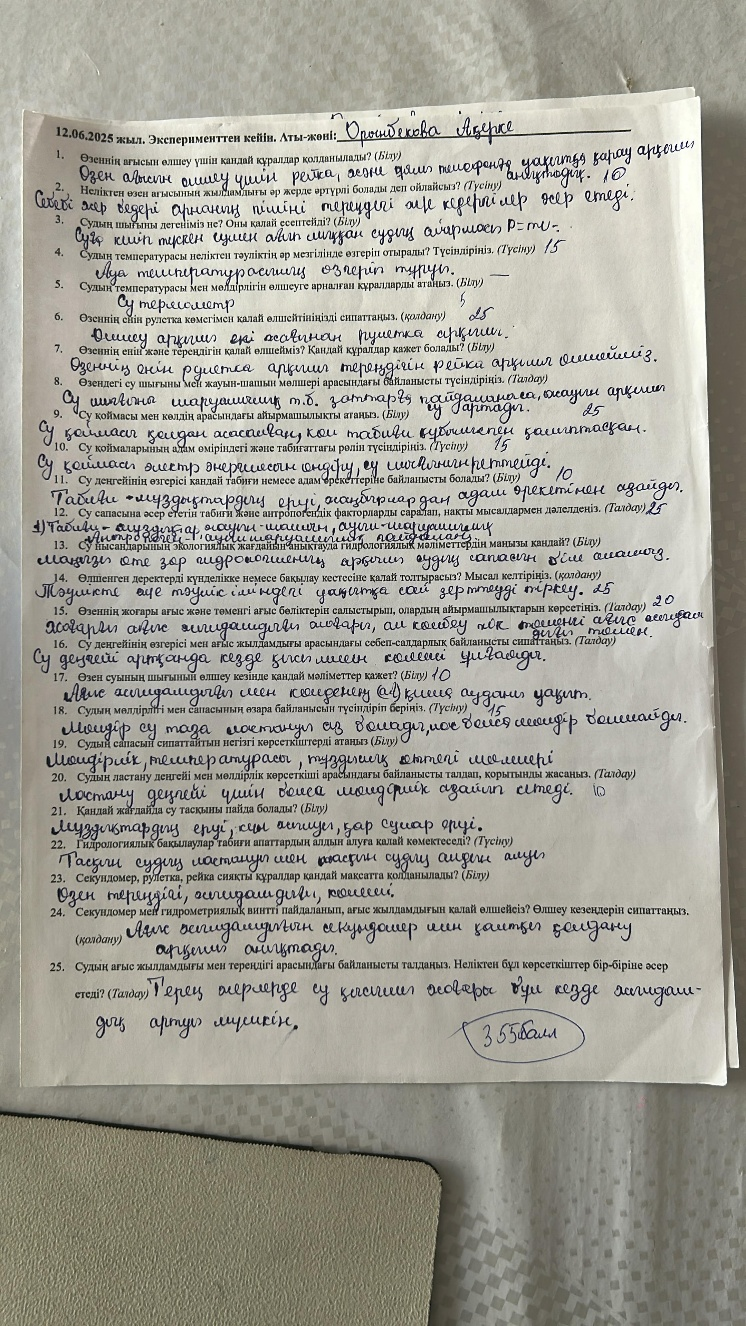 12.06.2025 жыл. Эксперименттен кейін. Аты-жөні: Орынбекова Ақерке
1. Өзеннің ағысын өлшеу үшін қандай құралдар қолданылады? (Білу)
Өзен ағысын өлшеу үшін рейка, және ұялы телефонда уақытқа қарау арқылы
анықтадық. 10
2. Неліктен өзен ағысының жылдамдығы әр жерде әртүрлі болады деп ойлайсыз? (Түсіну)
Себебі жер бедері арнаның пішіні тереңдегі және кедергілер әсер етеді.
3. Судың шығыны дегеніміз не? Оны қалай есептейді? (Білу)
Суға келіп түскен сумен ағып шыққан судың айырмасы
4. Судың температурасы неліктен тәуліктің әр мезгілінде өзгеріп отырады? Түсіндіріңіз. (Түсіну) 15
Ауа температурасының өзгеріп тұруы. —
5. Судың температурасы мен мөлдірлігін өлшеуге арналған құралдарды атаңыз. (Білу)
Су термометр 5
6. Өзеннің енін рулетка көмегімен қалай өлшейтініңізді сипаттаңыз. (қолдану) 25
Өлшеу арқылы екі жағынан рулетка арқылы.
7. Өзеннің енін және тереңдігін қалай өлшейміз? Қандай құралдар қажет болады? (Білу)
Өзеннің енін рулетка арқылы тереңдігін рейка арқылы өлшейміз.
8. Өзендегі су шығыны мен жауын-шашын мөлшері арасындағы байланысты түсіндіріңіз. (Талдау)
Су шығыны шаруашылық т.б. заттарға пайдаланылса, жауын арқылы
су артады. 25
9. Су қоймасы мен көлдің арасындағы айырмашылықты атаңыз. (Білу)
Су қоймасы қолдан жасалған, көл табиғи құбылыспен қалыптасқан.
10. Су қоймаларының адам өміріндегі және табиғаттағы рөлін түсіндіріңіз. (Түсіну) 15
Су қоймасы электр энергиясын өндіру, су шығынын реттейді.
11. Су деңгейінің өзгерісі қандай табиғи немесе адам әрекеттеріне байланысты болады? (Білу) 10
Табиғи - мұздықтардың еруі, жаңбырлардан адам әрекетінен азайды.
12. Су сапасына әсер ететін табиғи және антропогендік факторларды саралап, нақты мысалдармен дәлелдеңіз. (Талдау) 25
1) Табиғи - мұздықтар, жауын-шашын, ауыл-шаруашылық
Антропоген - ауылшаруашылықта пайдалану.
13. Су нысандарының экологиялық жағдайын анықтауда гидрологиялық мәліметтердің маңызы қандай? (Білу)
Маңызы өте зор гидрологияның арқасы судың сапасын біле аламыз.
14. Өлшенген деректерді күнделікке немесе бақылау кестесіне қалай толтырасыз? Мысал келтіріңіз. (қолдану)
Тәулікте әце тәулік ішіндегі уақытқа сай зерттеуді тіркеу. 25
15. Өзеннің жоғары ағыс және төменгі ағыс бөліктерін салыстырып, олардың айырмашылықтарын көрсетіңіз. (Талдау) 20
Жоғарғы ағыс жылдамдығы жоғары, ал көлбеу жоқ төменгі ағыс жылдам
дығы төмен.
16. Су деңгейінің өзгерісі мен ағыс жылдамдығы арасындағы себеп-салдарлық байланысты сипаттаңыз. (Талдау)
Су деңгейі артқанда кезде қысыммен көлемі ұлғаяды.
17. Өзен суының шығынын өлшеу кезінде қандай мәліметтер қажет? (Білу) 10
Ағыс жылдамдығы мен көлденең қима ауданы уақыт.
18. Судың мөлдірлігі мен сапасының өзара байланысын түсіндіріп беріңіз. (Түсіну) 15
Мөлдір су таза ластануы аз болады, лас болса мөлдір болмайды.
19. Судың сапасын сипаттайтын негізгі көрсеткіштерді атаңыз (Білу)
Мөлдірлік, температурасы, тұздылық оттегі мөлшері
20. Судың ластану деңгейі мен мөлдірлік көрсеткіші арасындағы байланысты талдап, қорытынды жасаңыз. (Талдау)
Ластану деңгейі үшін болса мөлдірлік азайып кетеді. 10
21. Қандай жағдайда су тасқыны пайда болады? (Білу)
Мұздықтардың еруі, күн жылуы, қар сулар еруі.
22. Гидрологиялық бақылаулар табиғи апаттардың алдын алуға қалай көмектеседі? (Түсіну)
Тасқын судың ластануы мен тасқын судың алдын алуы
23. Секундомер, рулетка, рейка сияқты құралдар қандай мақсатта қолданылады? (Білу)
Өзен тереңдігі, жылдамдығы, көлемі.
24. Секундомер мен гидрометриялық винтті пайдаланып, ағыс жылдамдығын қалай өлшейсіз? Өлшеу кезеңдерін сипаттаңыз.
(қолдану) Ағыс жылдамдығын секундомер мен қалтқы қолдану
арқылы анықтады.
25. Судың ағыс жылдамдығы мен тереңдігі арасындағы байланысты талдаңыз. Неліктен бұл көрсеткіштер бір-біріне әсер
етеді? (Талдау) Терең жерлерде су қысымы жоғары бұл кезде жылдам-
дық артуы мүмкін.
355балл